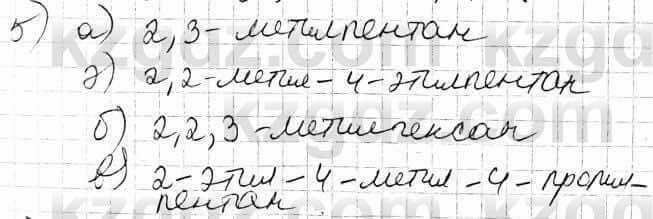 5) а) 2,3-метилпентан
г) 2,2-метил-4-этилпентан
б) 2,2,3-метилгексан
в) 2-этил-4-метил-4-пропил-
пентан.